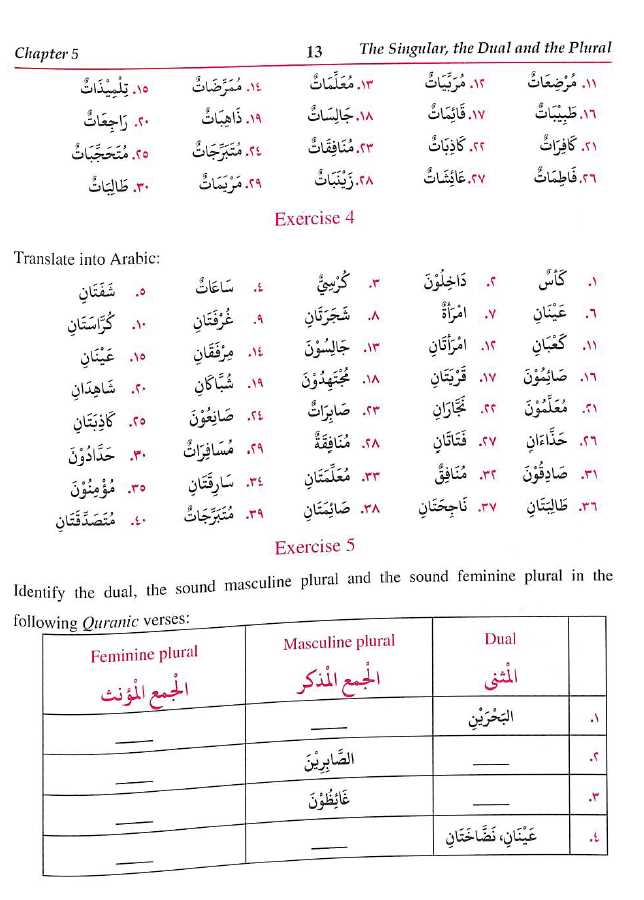 Chapter 5 13 The Singular, the Dual and the Plural
١١. مُرْضِعَاتٌ ١٢. مُرَبِّيَاتٌ ١٣. مُعَلِّمَاتٌ ١٤. مُمَرِّضَاتٌ ١٥. تِلْمِيْذَاتٌ
١٦. طَبِيْبَاتٌ ١٧. قَائِمَاتٌ ١٨. جَالِسَاتٌ ١٩. ذَاهِبَاتٌ ٢٠. رَاجِعَاتٌ
٢١. كَافِرَاتٌ ٢٢. كَاذِبَاتٌ ٢٣. مُنَافِقَاتٌ ٢٤. مُتَبَرِّجَاتٌ ٢٥. مُتَحَجِّبَاتٌ
٢٦. فَاطِمَاتٌ ٢٧. عَائِشَاتٌ ٢٨. زَيْنَبَاتٌ ٢٩. مَرْيَمَاتٌ ٣٠. طَالِبَاتٌ
Exercise 4
Translate into Arabic:
١. كَأْسٌ ٢. دَاخِلُوْنَ ٣. كُرْسِيٌّ ٤. سَاعَاتٌ ٥. شَفَتَانِ
٦. عَيْنَانِ ٧. امْرَأَةٌ ٨. شَجَرَتَانِ ٩. غُرْفَتَانِ ١٠. كُرَّاسَتَانِ
١١. كَعْبَانِ ١٢. امْرَأَتَانِ ١٣. جَالِسُوْنَ ١٤. مِرْفَقَانِ ١٥. عَيْنَانِ
١٦. صَائِمُوْنَ ١٧. قَرْيَتَانِ ١٨. مُجْتَهِدُوْنَ ١٩. شُبَّاكَانِ ٢٠. شَاهِدَانِ
٢١. مُعَلِّمُوْنَ ٢٢. نَجَّارَانِ ٢٣. صَابِرَاتٌ ٢٤. صَانِعُوْنَ ٢٥. كَاذِبَتَانِ
٢٦. حَذَّاءَانِ ٢٧. فَتَاتَانِ ٢٨. مُنَافِقَةٌ ٢٩. مُسَافِرَاتٌ ٣٠. حَدَّادُوْنَ
٣١. صَادِقُوْنَ ٣٢. مُنَافِقٌ ٣٣. مُعَلِّمَتَانِ ٣٤. سَارِقَتَانِ ٣٥. مُؤْمِنُوْنَ
٣٦. طَالِبَتَانِ ٣٧. نَاجِحَتَانِ ٣٨. صَائِمَتَانِ ٣٩. مُتَبَرِّجَاتٌ ٤٠. مُتَصَدِّقَتَانِ
Exercise 5
Identify the dual, the sound masculine plural and the sound feminine plural in the
following Quranic verses:
Feminine plural Masculine plural Dual
الْجمع المْؤنث الْجمع المْذكر المْثنى
١. البَحْرَيْنِ
٢. الصَّابِرِيْنَ
٣. غَائِظُوْنَ
٤. عَيْنَانِ، نَضَّاخَتَانِ